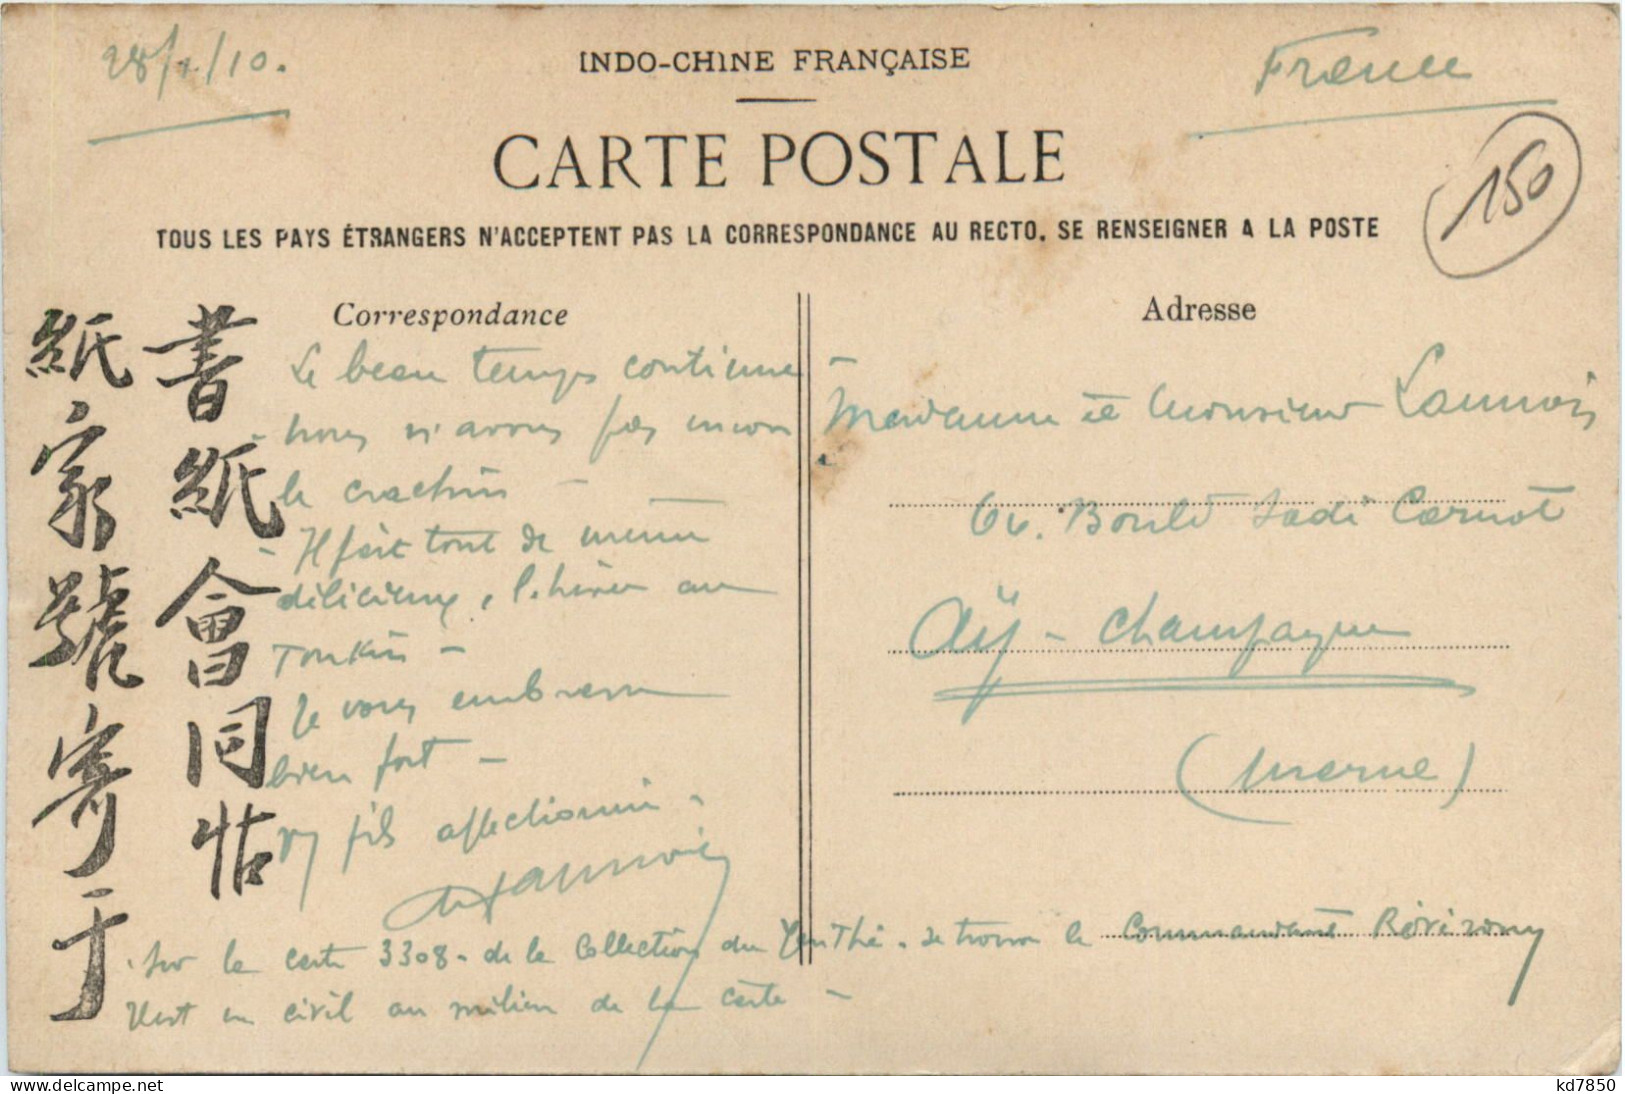 28/1/10.
INDO-CHINE FRANÇAISE
France
CARTE POSTALE
150
TOUS LES PAYS ÉTRANGERS N'ACCEPTENT PAS LA CORRESPONDANCE AU RECTO. SE RENSEIGNER A LA POSTE
書紙會同帖
紙家號寄于
Correspondance
Le beau temps continue -
- nous n'avons pas encore
le crachin -
- Il fait tout de même
délicieux, l'hiver au
Tonkin -
Je vous embrasse
bien fort -
fils affectionné -
Launois
Adresse
Madame et Monsieur Launois
Bould Sadi Carnot
Aÿ - Champagne
(Marne)
Sur la carte 3308 - de la Collection du Yen Thé. se trouve le Commandant
en civil au milieu de la carte -
kd7850